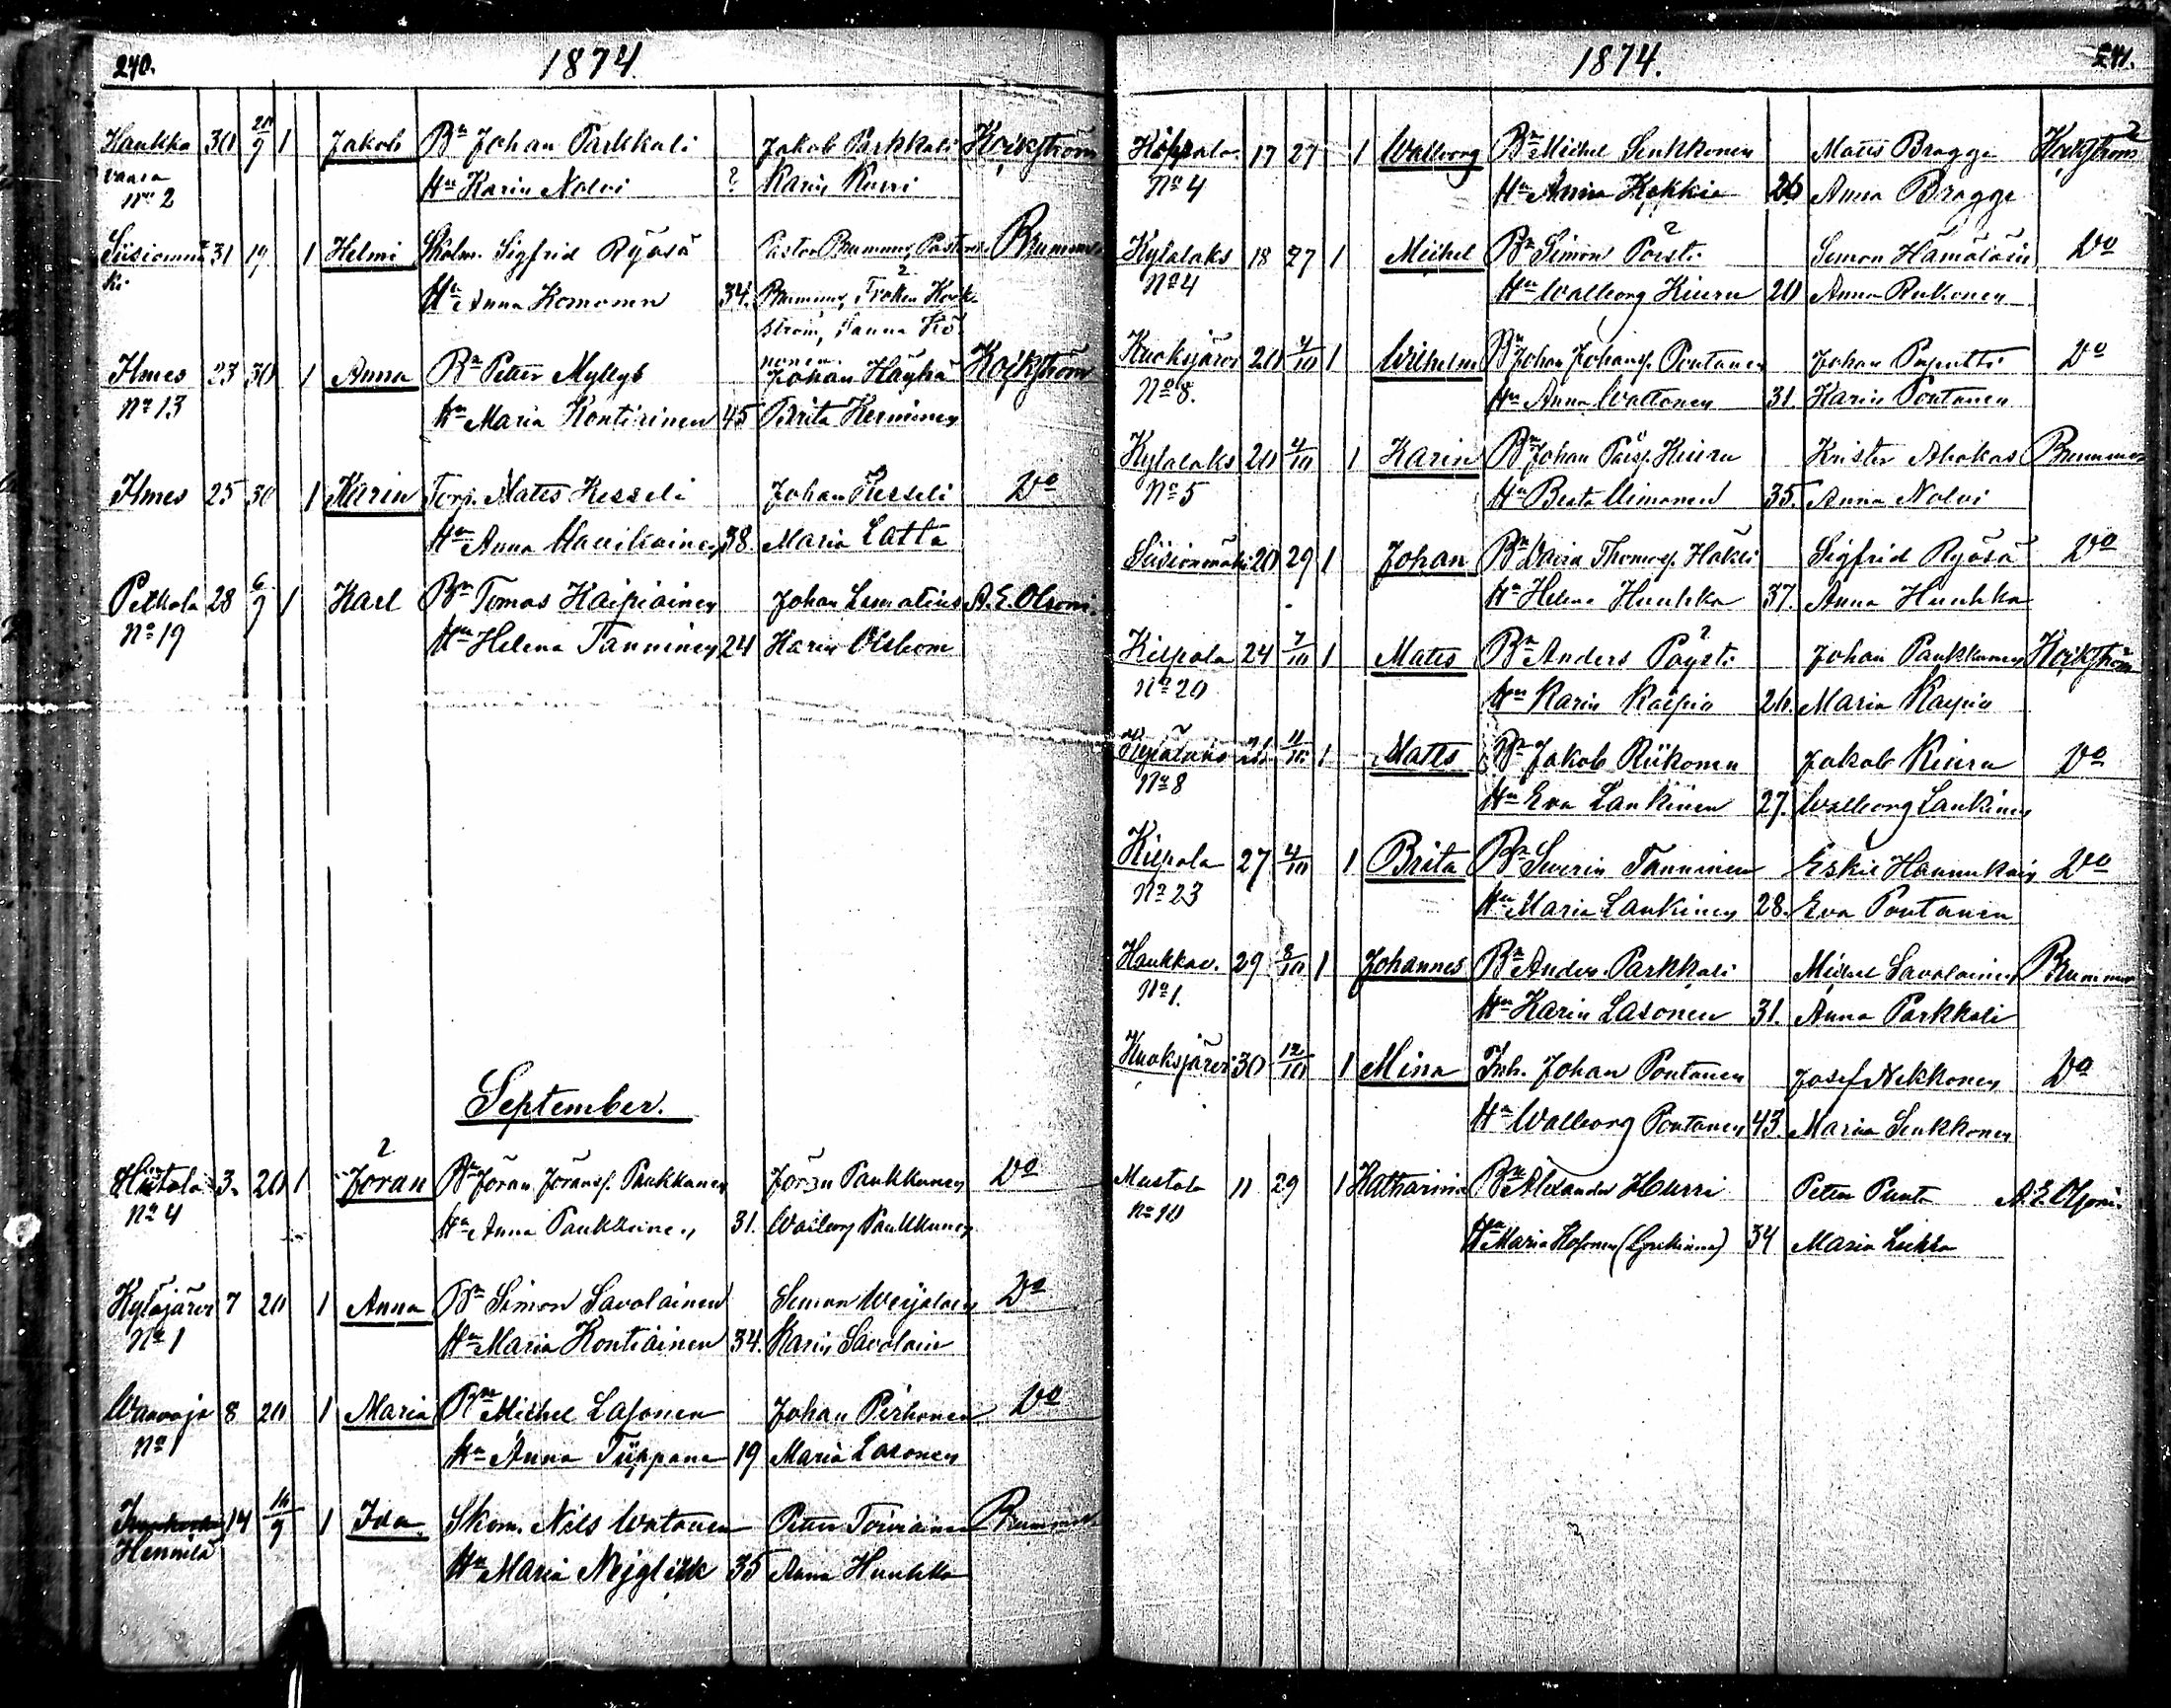 240.
1874.
Haukka 30 20/9 1 Jakob Bn Johan Parkkali Jakob Parkkali Hoikström
vaara Hu Karin Nalvi ? Karin Kurri
No 2
Siisiönmä 31 19 1 Helmi Skolm. Sigfrid Ryösä Pastor Brummer, Pastorsk. Brummer
ki Hu Anna Komonen 34. Brummer, Fröken Hoik-
ström, Sanna Ko
ponen
Ilmes 23 30 1 Anna Bn Petter Myllys Johan Häyhä Hoikström
No 13 Hu Maria Kontiainen 45 Brita Kerminen
Ilmes 25 30 1 Karin Torp. Mats Kesseli Johan Kesseli Do
Hu Anna Havikainen 38. Maria Latta
Petkola 28 6/9 1 Karl Bn Tomas Kaipiainen Johan Lematius A. E. Olsoni.
No 19 Hu Helena Tanninen 24 Karin Olsbom
September.
Hiitola 3. 20 1 Jöran Bn Jöran Jöransf. Paukkunen Jöran Paukkunen Do
No 4 Hu Anna Paukkunen 31. Walborg Paukkunen
Kyläjärvi 7 20 1 Anna Bn Simon Savolainen Simon Weijalain Do
No 1 Hu Maria Kontiainen 34. Karin Savolain
Waavoja 8 20 1 Maria Bn Michel Lasonen Johan Pirhonen Do
No 1 Hu Anna Tiippana 19 Maria Lasonen
14 16/9 1 Ida Skom. Nils Watanen Petter Toiviainen Brummer
Hennilä Hu Maria Nejglick 35 Anna Huuhka
1874.
241.
Kilpola 17 27 1 Walborg Bn Michel Seukkonen Matts Bragge Hoikström
No 4 Hu Anna Kekkia 26 Anna Bragge
Kylälaks 18 27 1 Michel Bn Simon Pöisti Simon Hämäläin Do
No 4 Hu Walborg Kiuru 20 Anna Rukonen
Kuoksjärvi 20 4/10 1 Wilhelm Bn Johan Johansf. Pontanen Johan Pusentti Do
No 8. Hu Anna Wattonen 31. Karin Pontanen
Kylälaks 20 4/10 1 Karin Bn Johan Pärsf. Kiuru Krister Ahokas Brummer
No 5 Hu Beata Mimonen 35. Anna Nalvi
Siisiönmäki 20 29 1 Johan Bn David Thomasf. Häkli Sigfrid Ryösä Do
Hu Helena Huuhka 37. Anna Huuhka
Kilpola 24 7/10 1 Mats Bn Anders Pöysti Johan Paukkunen Hoikström
No 20 Hu Karin Kaipia 26. Maria Kaipia
11/10 1 Matts Bn Jakob Riikonen Jakob Kiuru Do
No 8 Hu Eva Lankinen 27. Walborg Lankinen
Kilpola 27 4/10 1 Brita Bn Severin Tanninen Eskil Hannukain Do
No 23 Hu Maria Lankinen 28. Eva Pontanen
Haukkav. 29 8/10 1 Johannes Bn Anders Parkkali Michel Savolainen Brummer
No 1. Hu Karin Lasonen 31. Anna Parkkali
Kuoksjärvi 30 12/10 1 Mina Inh. Johan Pontanen Josef Nekkonen Do
Hu Walborg Pontanen 43. Maria Seukkonen
Mustola 11 29 1 Katharina Bn Alexander Hurri Petter Punta A. E. Olsoni.
No 10 Hu Maria Kosonen 34 Maria Liekka